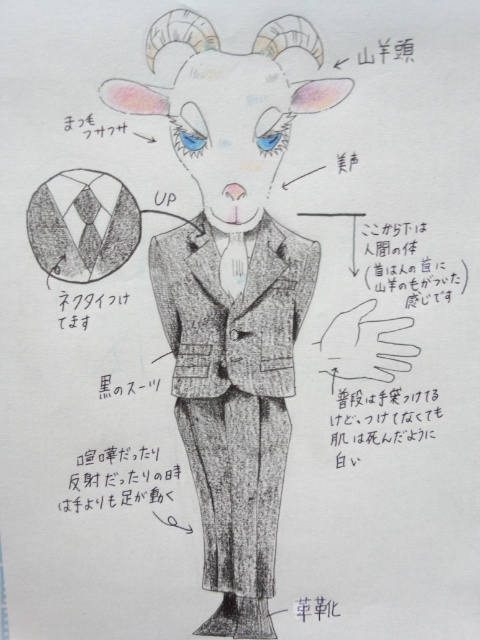 山羊頭
まつ毛
フサフサ
美声
UP
ここから下は
人間の体
(首は人の首に
山羊の毛がついた
感じです)
ネクタイつけ
てます
黒のスーツ
普段は手袋つけてる
けど、つけてなくても
肌は死んだように
白い
喧嘩だったり
反射だったりの時
は手よりも足が動く
革靴